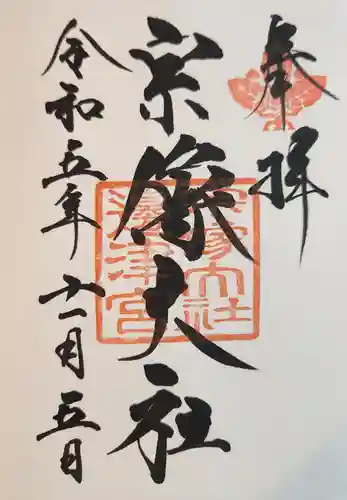 奉拝
宗像大社
令和五年十一月五日
宗像大社
邊津宮